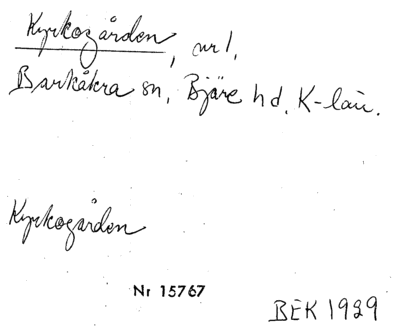 Kyrkogården, nr 1,
Barkåkra sn, Bjäre hd, K-län.
Kyrkogården
Nr 15767
BEK 1929